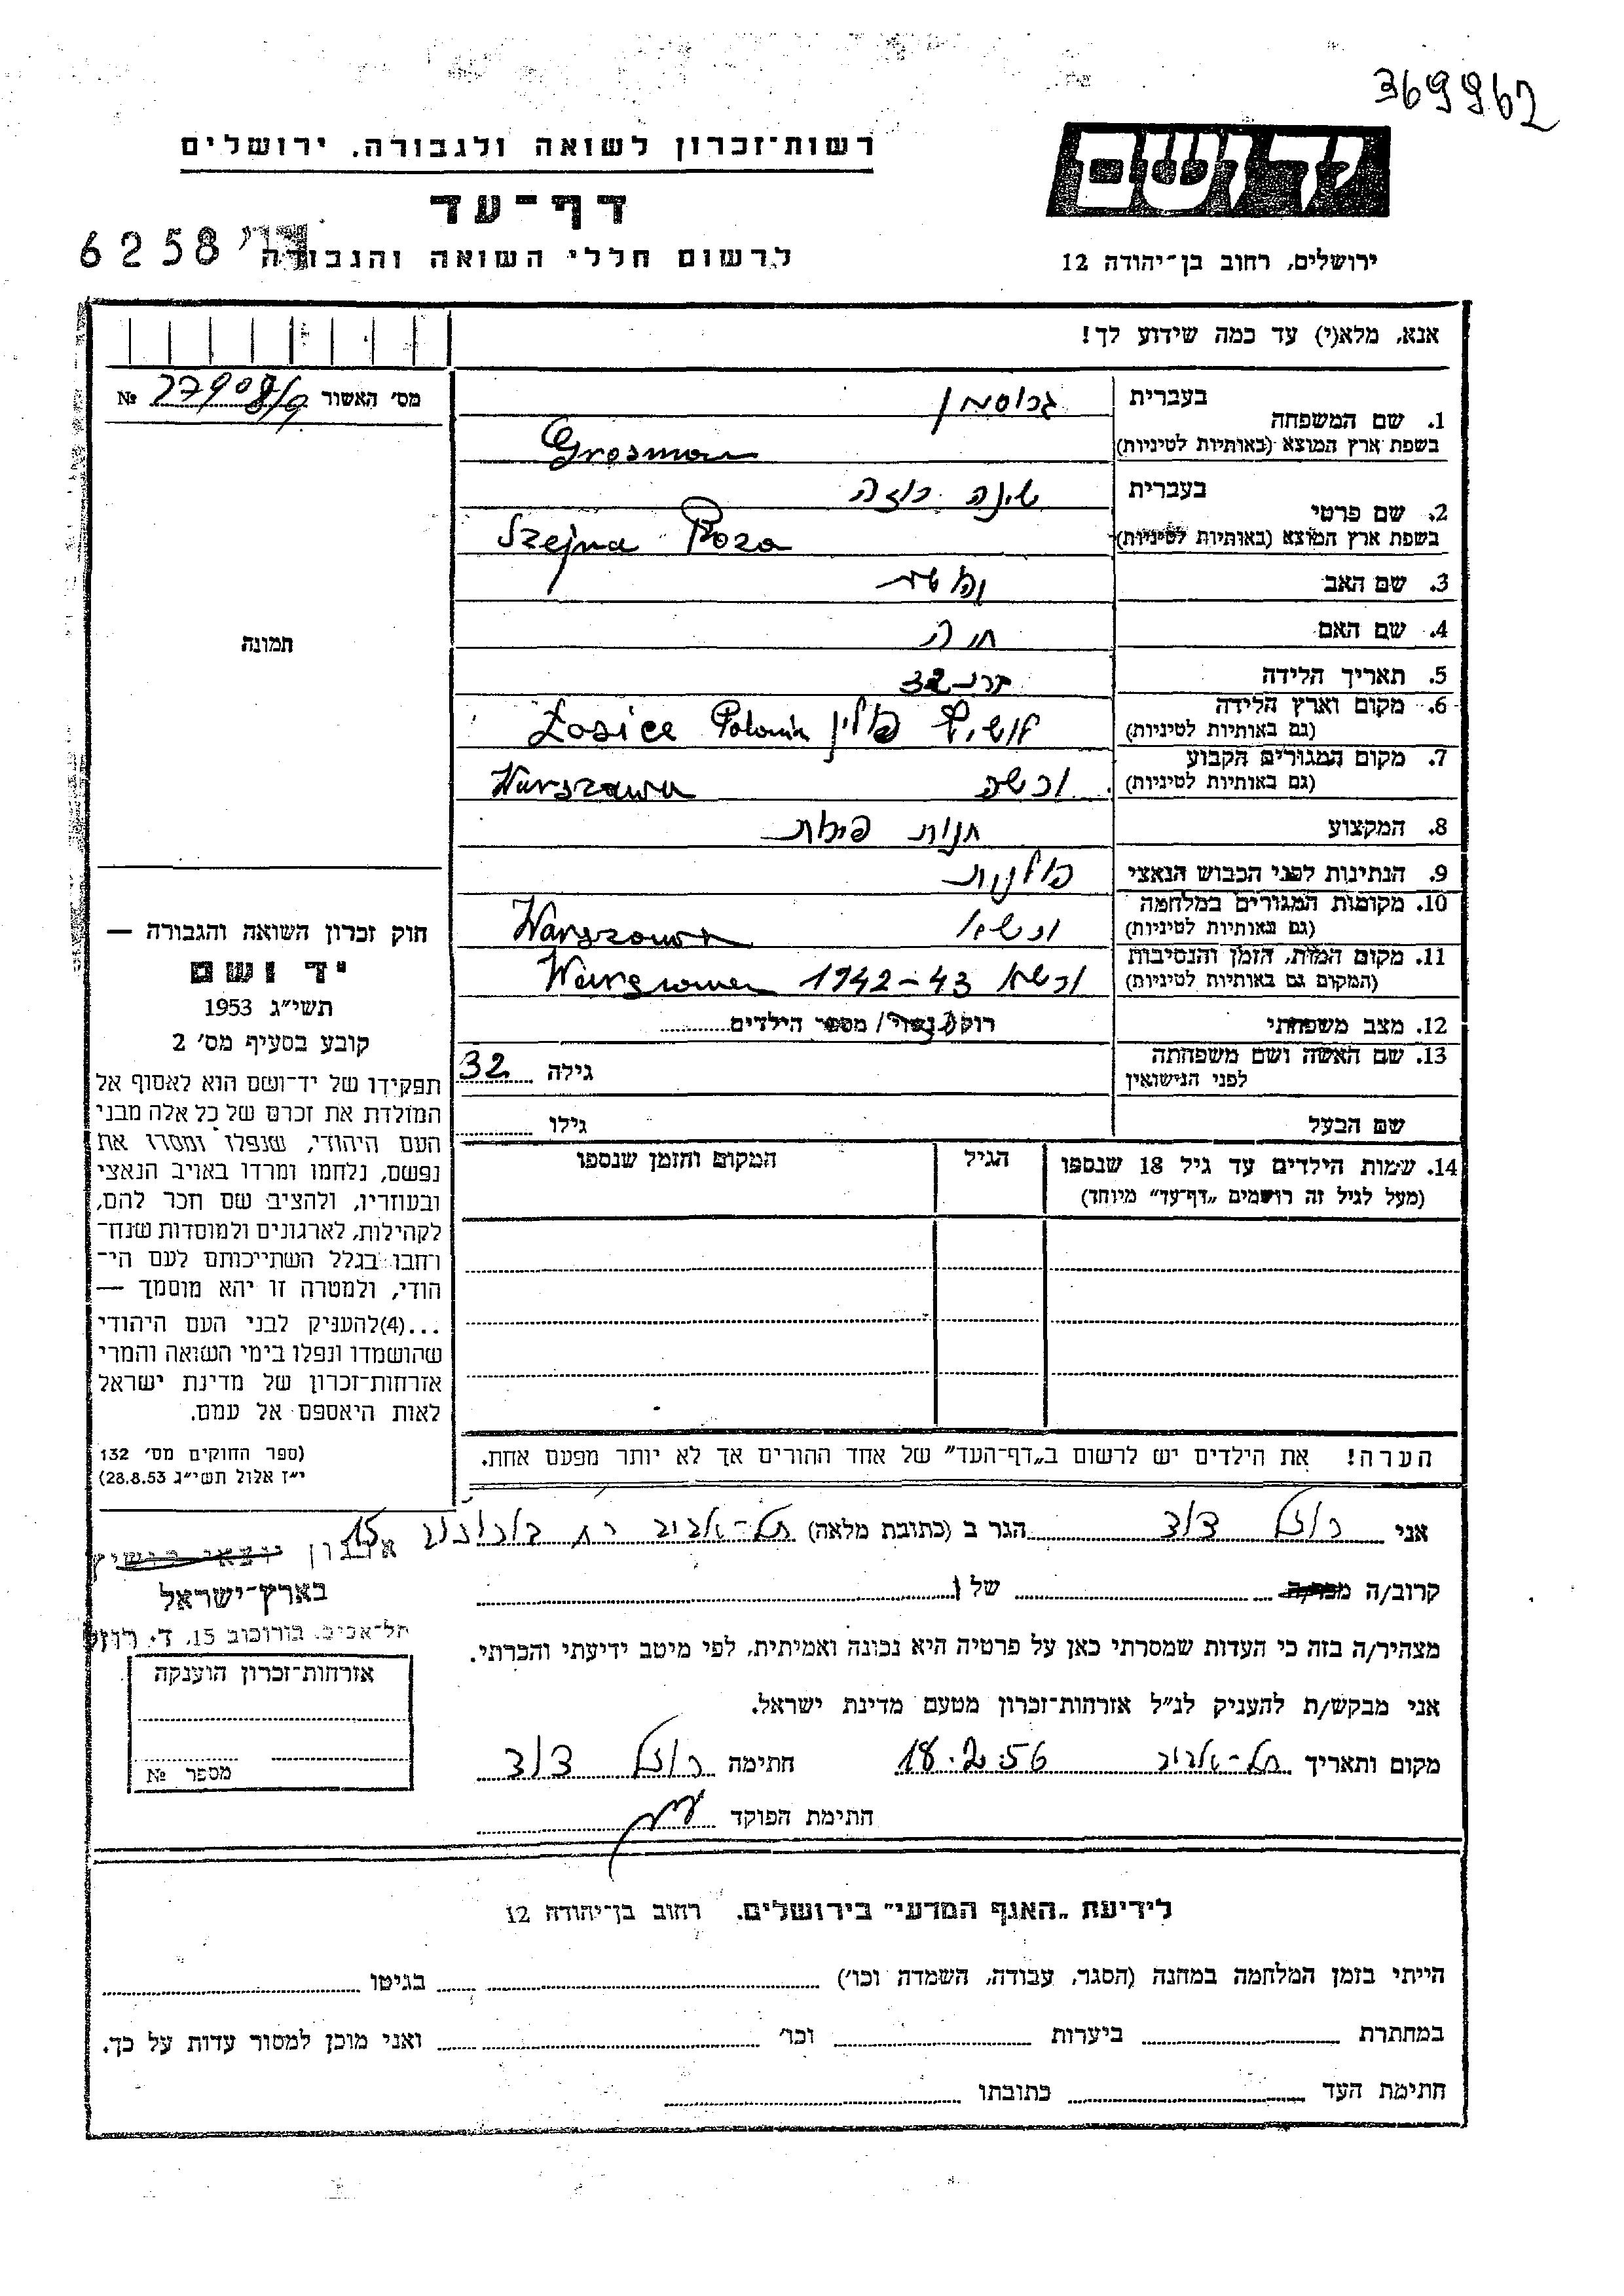 369962
רשות־זכרון לשואה ולגבורה, ירושלים
דף־עד
לרשום חללי השואה והגבורה
6258
ירושלים, רחוב בן־יהודה 12
אנא, מלא(י) עד כמה שידוע לך!
מס׳ האשור 27908/9 №
1. שם המשפחה בעברית גרוסמן
בשפת ארץ המוצא (באותיות לטיניות) Grosman
2. שם פרטי בעברית שינה רוזה
בשפת ארץ המוצא (באותיות לטיניות) Szejna Roza
3. שם האב
4. שם האם חוה
5. תאריך הלידה 32
6. מקום וארץ הלידה
(גם באותיות לטיניות) פולין Łosice Polonia
7. מקום המגורים הקבוע
(גם באותיות לטיניות) ורשה Warszawa
8. המקצוע חנות
9. הנתינות לפני הכבוש הנאצי פולנית
10. מקומות המגורים במלחמה
(גם באותיות לטיניות) ורשא Warszawa
11. מקום המות, הזמן והנסיבות
(המקום גם באותיות לטיניות) ורשא 1942-43 Warszawa
12. מצב משפחתי רוק/ נשוי/ מספר הילדים
13. שם האשה ושם משפחתה
לפני הנישואין גילה 32
שם הבעל גילו
14. שמות הילדים עד גיל 18 שנספו הגיל המקום והזמן שנספו
(מעל לגיל זה רושמים „דף־עד״ מיוחד)
הערה! את הילדים יש לרשום ב„דף־העד״ של אחד ההורים אך לא יותר מפעם אחת.
תמונה
חוק זכרון השואה והגבורה —
יד ושם
תשי״ג 1953
קובע בסעיף מס׳ 2
תפקידו של יד־ושם הוא לאסוף אל
המולדת את זכרם של כל אלה מבני
העם היהודי, שנפלו ומסרו את
נפשם, נלחמו ומרדו באויב הנאצי
ובעוזריו, ולהציב שם וזכר להם,
לקהילות, לארגונים ולמוסדות שנח־
רחבו בגלל השתייכותם לעם הי־
הודי, ולמטרה זו יהא מוסמך —
...(4)להעניק לבני העם היהודי
שהושמדו ונפלו בימי השואה והמרי
אזרחות־זכרון של מדינת ישראל
לאות היאספם אל עמם.
(ספר החוקים מס׳ 132
י״ז אלול תשי״ג 28.8.53)
אני רוזל דוד הגר ב (כתובת מלאה) תל-אביב רח בורוכוב 15
ארגון יוצאי לושיץ
בארץ־ישראל
תל־אביב, בורוכוב 15, ד. רוזל
קרוב/ה מכר/ה של
מצהיר/ה בזה כי העדות שמסרתי כאן על פרטיה היא נכונה ואמיתית, לפי מיטב ידיעתי והכרתי.
אני מבקש/ת להעניק לנ״ל אזרחות־זכרון מטעם מדינת ישראל.
מקום ותאריך תל-אביב 18.2.56 חתימה רוזל דוד
חתימת הפוקד
אזרחות־זכרון הוענקה
מספר №
לידיעת „האגף המדעי״ בירושלים. רחוב בן־יהודה 12
הייתי בזמן המלחמה במחנה (הסגר, עבודה, השמדה וכו׳) בגיטו
במחתרת ביערות וכו׳ ואני מוכן למסור עדות על כך.
חתימת העד כתובתו